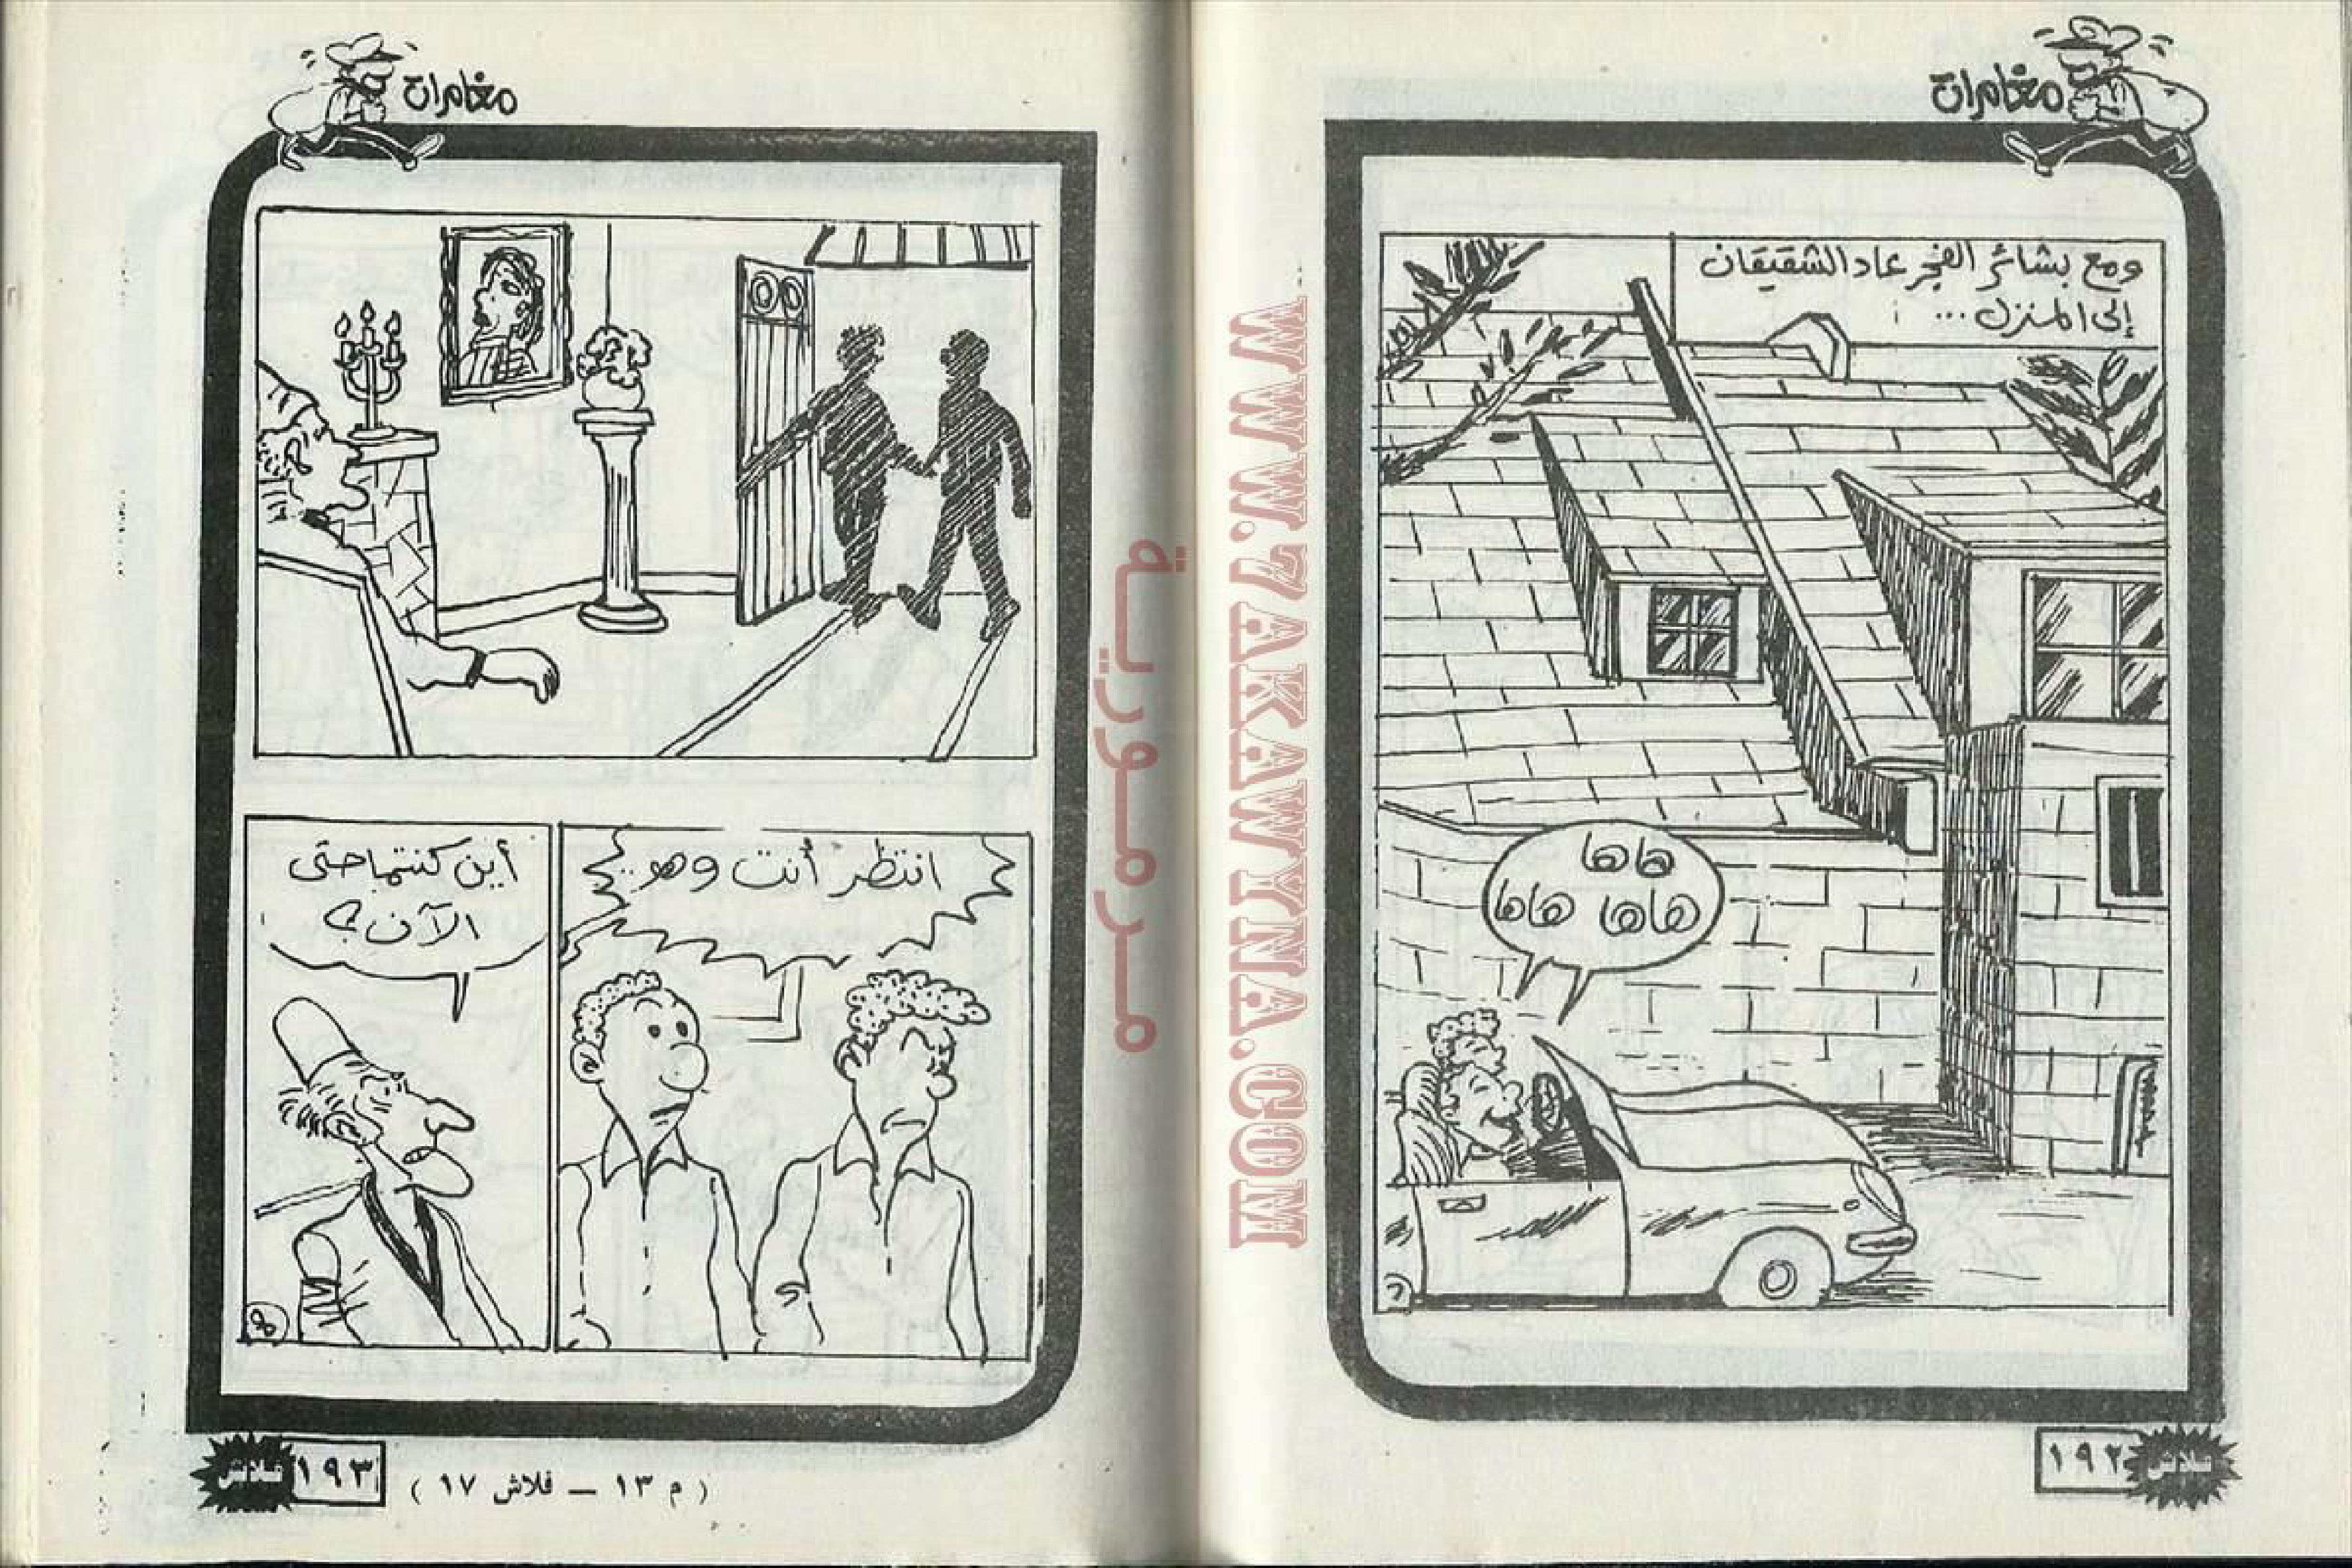 مغامرات
ومع بشائر الفجر عاد الشقيقان
إلى المنزل ...
هاها
هاها هاها
١٩٢
فلاش
WWW.7AKAWYNA.COM
مرمورية
مغامرات
انتظر أنت وهو..
أين كنتما حتى
الآن ؟
١٩٣
فلاش
( م ١٣ – فلاش ١٧ )